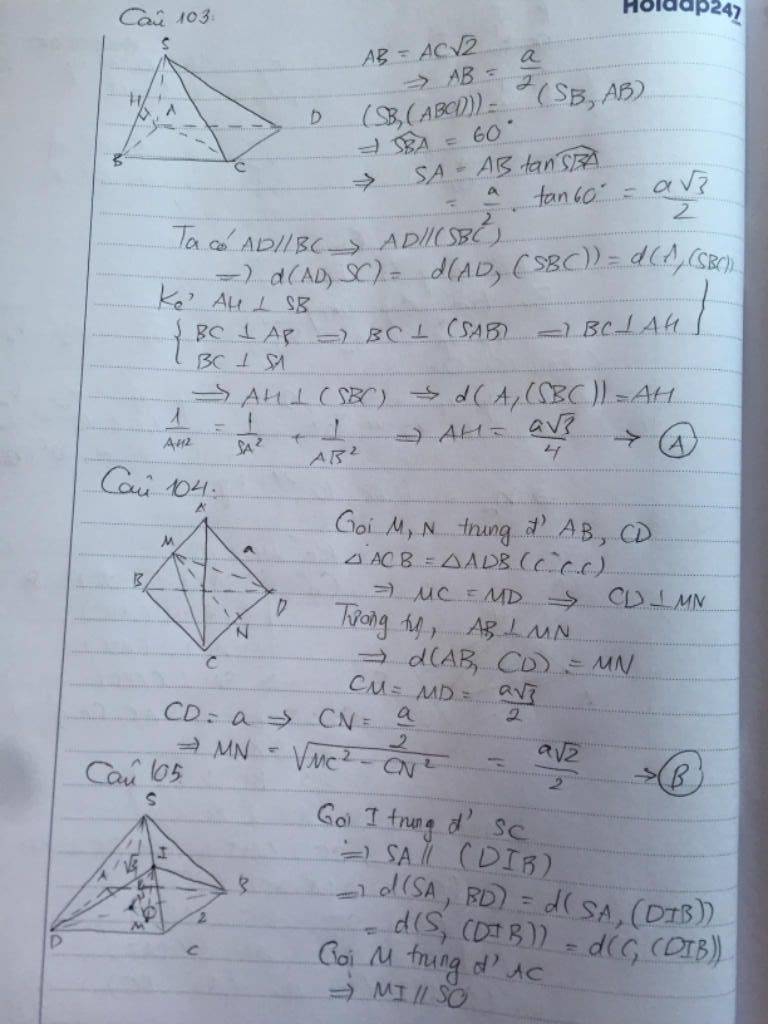 Hoidap247
Câu 103:
S
H
A
D
B
C
AB = AC√2
⇒ AB = a/2
(SB,(ABCD)) = (SB, AB)
⇒ SBA = 60°
⇒ SA = AB tan SBA
= a/2 . tan60° = a√3/2
Ta có AD//BC ⇒ AD//(SBC)
⇒ d(AD, SC) = d(AD, (SBC)) = d(A,(SBC))
Kẻ AH ⊥ SB
{ BC ⊥ AB ⇒ BC ⊥ (SAB) ⇒ BC ⊥ AH }
BC ⊥ SA
⇒ AH ⊥ (SBC) ⇒ d(A,(SBC)) = AH
1/AH² = 1/SA² + 1/AB² ⇒ AH = a√3/4 → A
Câu 104:
A
M
a
B
D
N
C
Gọi M, N trung đ' AB, CD
△ACB = △ADB (c.c.c)
⇒ MC = MD ⇒ CD ⊥ MN
Tương tự, AB ⊥ MN
⇒ d(AB, CD) = MN
CM = MD = a√3/2
CD = a ⇒ CN = a/2
⇒ MN = √MC² - CN² = a√2/2 → B
Câu 105
S
I
A
B
D
M
2
C
Gọi I trung đ' SC
⇒ SA // (DIB)
⇒ d(SA, BD) = d(SA, (DIB))
= d(S, (DIB)) = d(C, (DIB))
Gọi M trung đ' AC
⇒ MI // SO